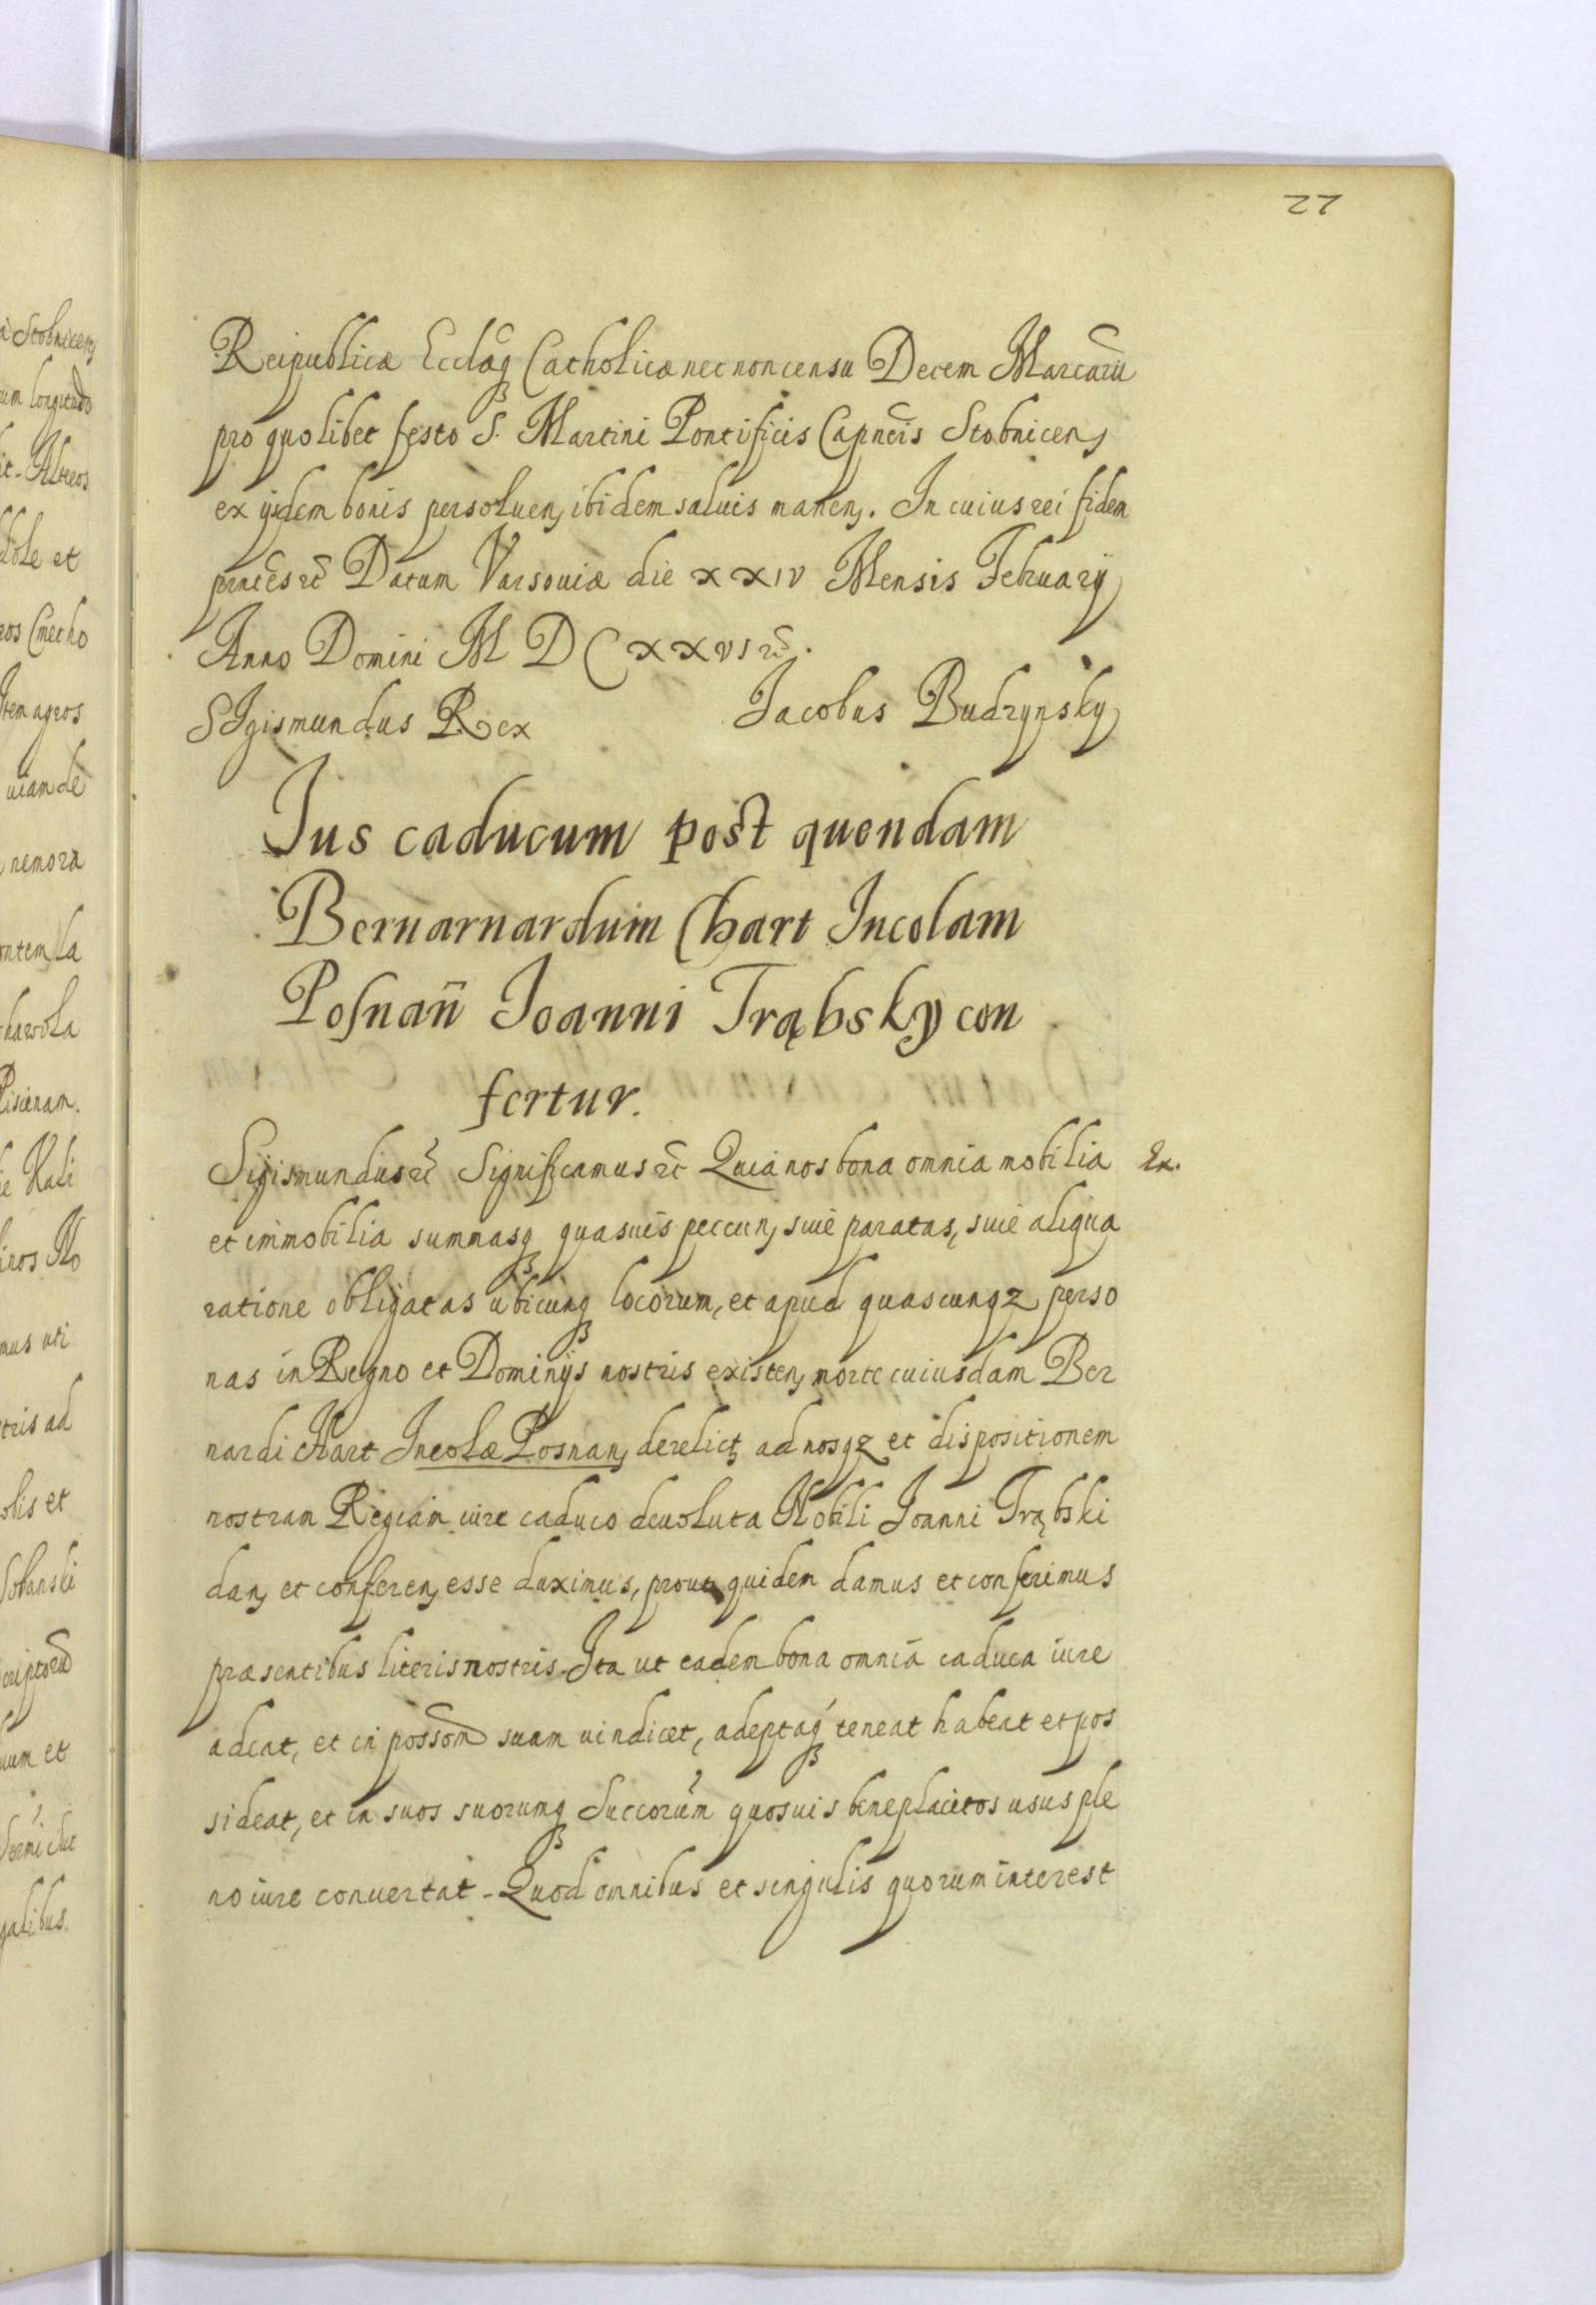 22
Reipublicæ Ecclãq₃ Catholicæ nec non censu Decem Marcarũ
pro quolibet festo S. Martini Pontificis Capnẽis Stobnicen,
ex ijsdem bonis persoluen, ibidem saluis manen,. In cuius rei fidem
pntẽs etc̃ Datum Varsouiæ die XXIV Mensis February
Anno Domini M D C XXVI etc̃.
SIgismundus Rex Jacobus Budzynsky
Jus caducum post quendam
Bernarnardum Chart Incolam
Posnañ Joanni Trąbsky con
fertur.
Sigismundus etc̃ Significamus etc̃ Quia nos bona omnia mobilia Ex.
et immobilia summasq₃ quasuis peccun, siue paratas, siue aliqua
ratione obligatas ubicunq₃ locorum, et apud quascunqz perso
nas in Regno et Dominijs nostris existen, morte cuiusdam Ber
nardi Chart Incolæ Posnan, derelict, ad nosqz et dispositionem
nostram Regiam iure caduco deuoluta Nobili Joanni Trąbski
dan, et conferen, esse duximus, prout quidem damus et conferimus
præsentibus literis nostris. Ita ut eadem bona omnia caduca iure
adeat, et in possom̃ suam uindicet, adeptaq₃ teneat habeat et pos
sideat, et in suos suorumq₃ Succorũm quosuis beneplacitos usus ple
no iure conuertat - Quod omnibus et singulis quorum interest